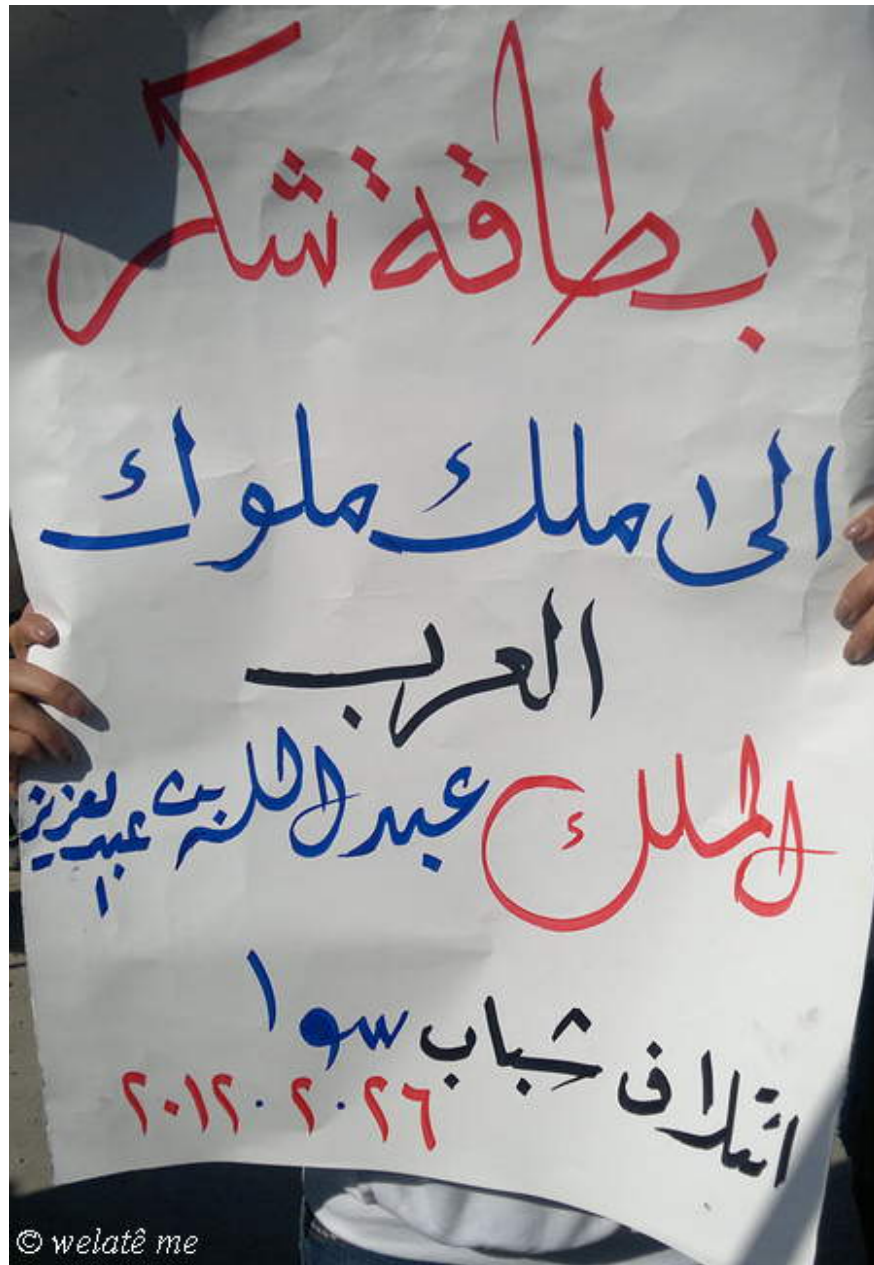 بطاقة شكر
الى ملك ملوك
العرب
الملك عبد الله بن عبد العزيز
ائتلاف شباب سوا
٢٦ . ٢ . ٢٠١٢
© welatê me